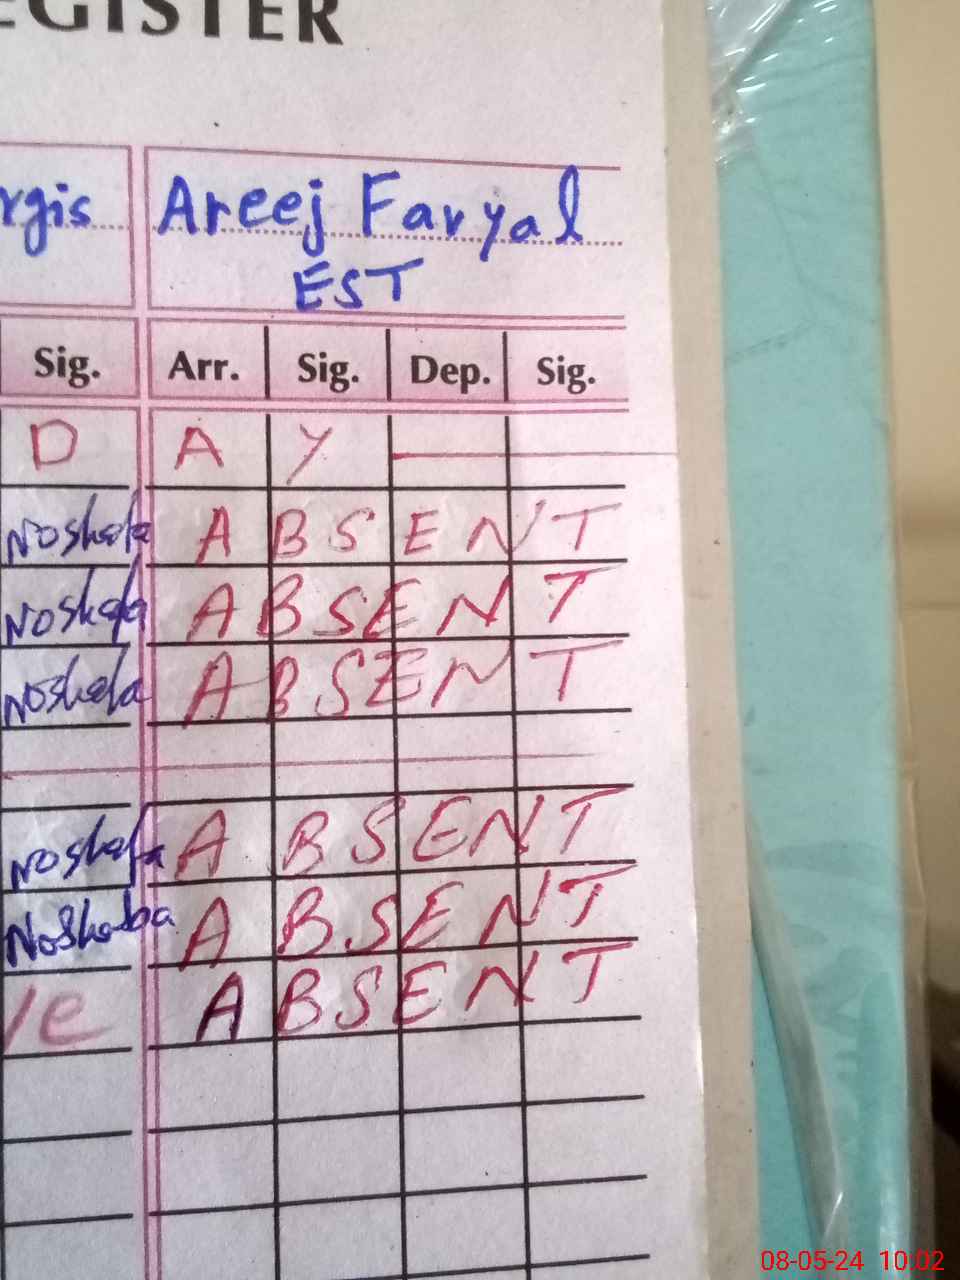 EGISTER
rgis Areej Faryal
EST
Sig. Arr. Sig. Dep. Sig.
D A Y
Nosheba A B S E N T
Nosheba A B S E N T
Nosheba A B S E N T
Nosheba A B S E N T
Nosheba A B S E N T
ve A B S E N T
08-05-24 10:02